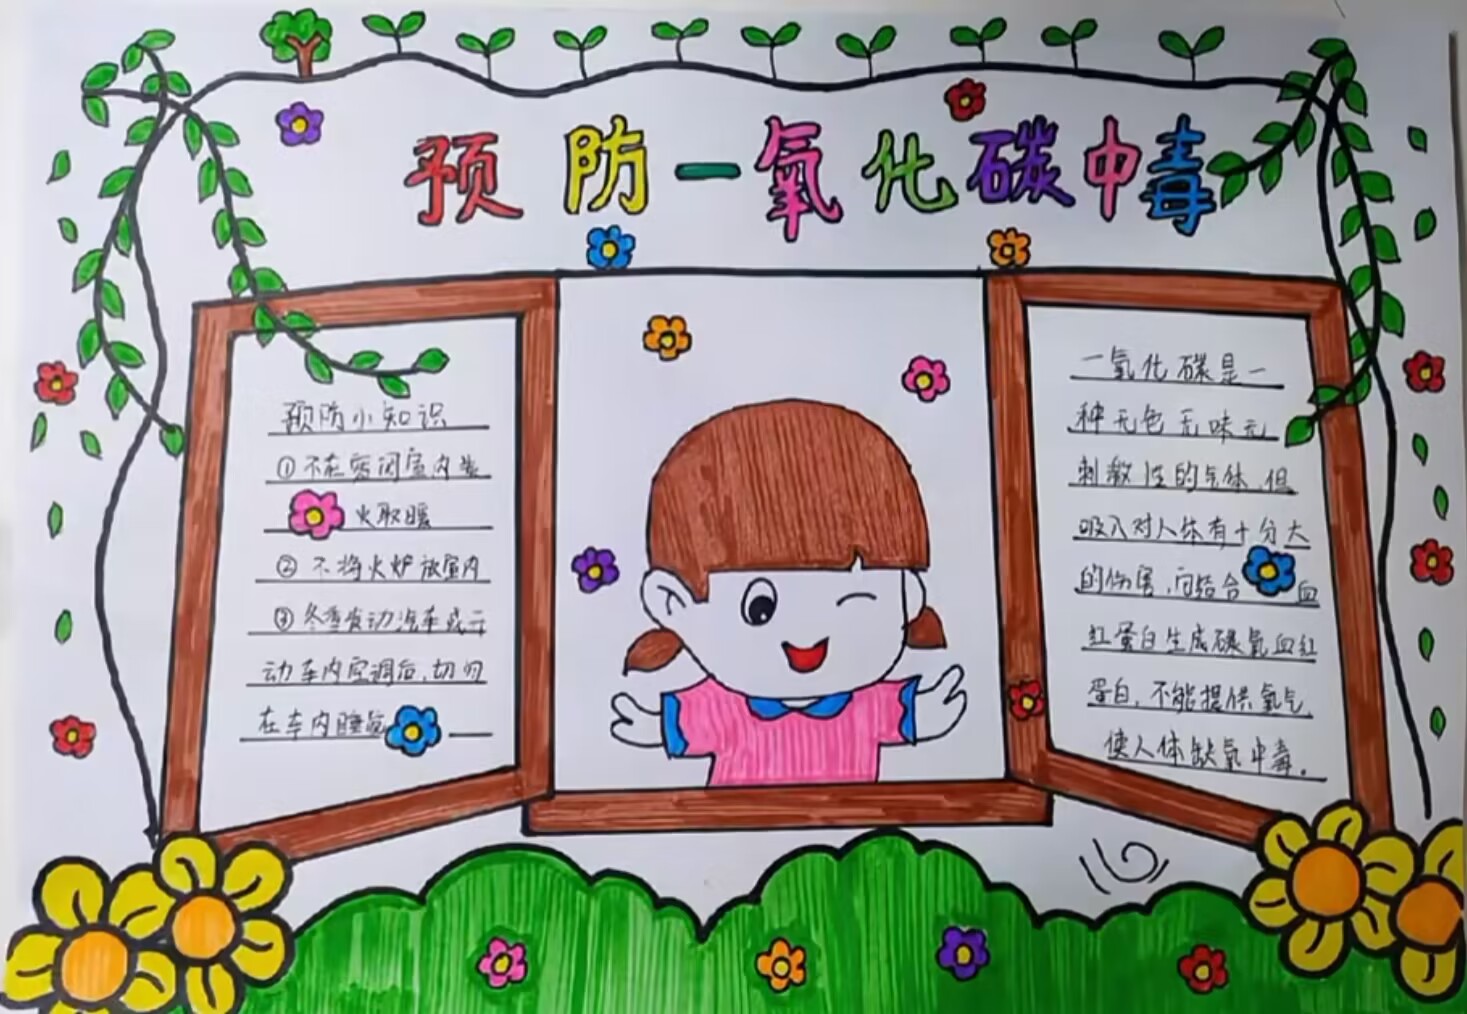 预防一氧化碳中毒
预防小知识
①不在密闭室内装
火取暖
②不将火炉放室内
③冬季发动汽车或示
动车内空调后,切勿
在车内睡
一氧化碳是一
种无色无味无
刺激性的气体,但
吸入对人体有十分大
的伤害,结合血
红蛋白生成碳氧血红
蛋白,不能提供氧气,
使人体缺氧中毒。